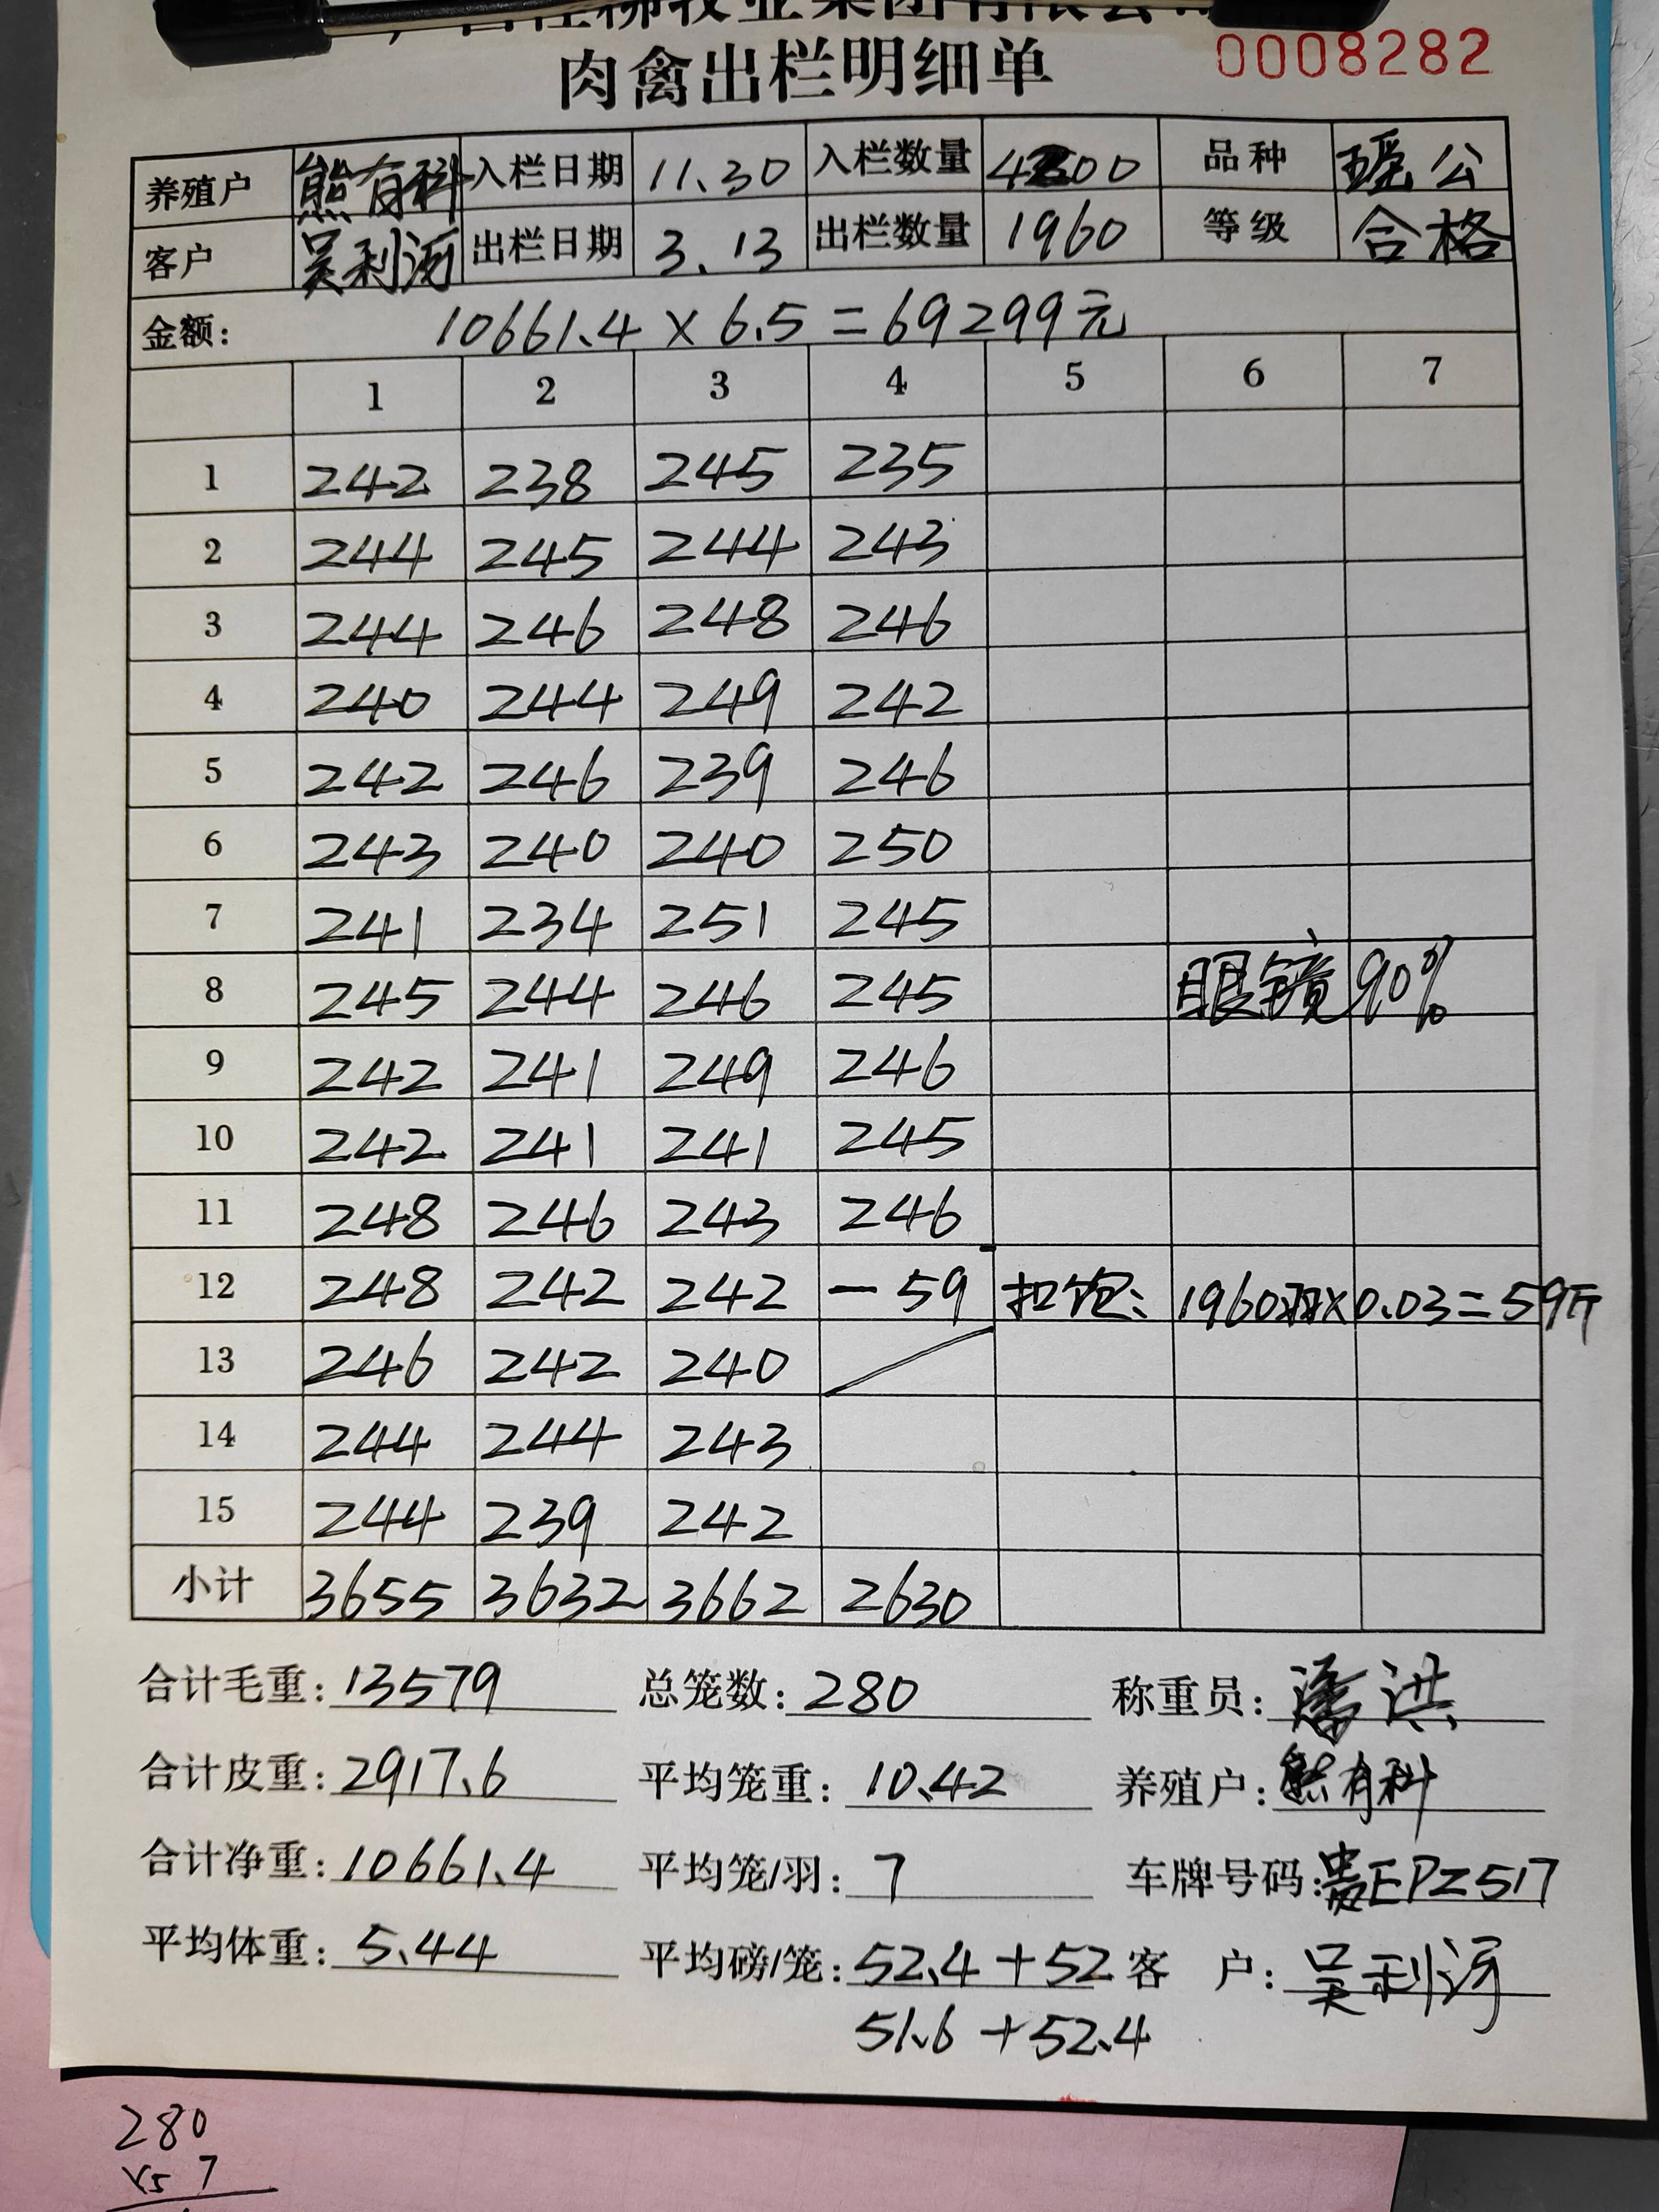 肉禽出栏明细单 0008282
养殖户 熊有科 入栏日期 11.30 入栏数量 品种 瑶公
客户 吴利 出栏日期 3.13 出栏数量 1960 等级 合格
金额: 10661.4 × 6.5 = 69299元
1 2 3 4 5 6 7
1 242 238 245 235
2 244 245 244 243
3 244 246 248 246
4 240 244 249 242
5 242 246 239 246
6 243 240 240 250
7 241 234 251 245
8 245 244 246 245 眼镜 90%
9 242 241 249 246
10 242 241 241 245
11 248 246 243 246
12 248 242 242 -59 扣饱: 1960羽×0.03=59斤
13 246 242 240
14 244 244 243
15 244 239 242
小计 3655 3632 3662 2630
合计毛重: 13579 总笼数: 280 称重员: 潘洪
合计皮重: 2917.6 平均笼重: 10.42 养殖户: 熊有科
合计净重: 10661.4 平均笼/羽: 7 车牌号码: 贵EPZ517
平均体重: 5.44 平均磅/笼: 52.4+52 客 户: 吴利
51.6+52.4
280
7